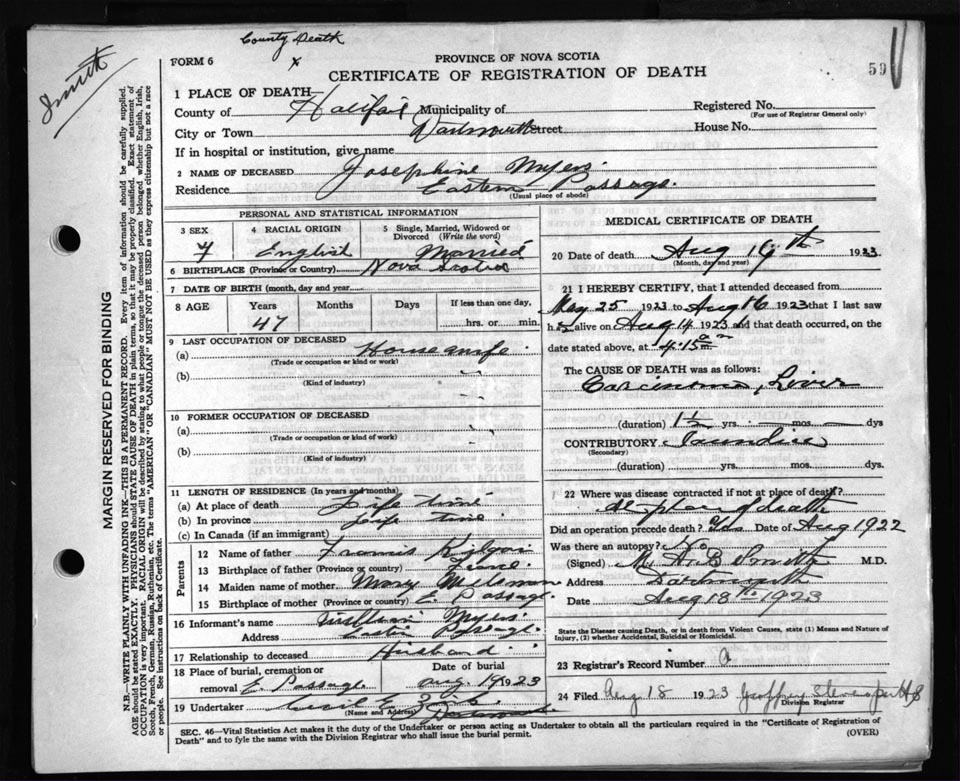 County Death
x
Smith
FORM 6
PROVINCE OF NOVA SCOTIA
CERTIFICATE OF REGISTRATION OF DEATH
59
1 PLACE OF DEATH—
County of Halifax Municipality of
Registered No.
(For use of Registrar General only)
City or Town Dartmouth Street House No.
If in hospital or institution, give name
2 NAME OF DECEASED Josephine Myers
Residence Eastern Passage.
(Usual place of abode)
PERSONAL AND STATISTICAL INFORMATION
3 SEX 4 RACIAL ORIGIN 5 Single, Married, Widowed or Divorced (Write the word)
F English Married
6 BIRTHPLACE (Province or Country) Nova Scotia
7 DATE OF BIRTH (month, day and year)
8 AGE Years Months Days If less than one day,
47 hrs. or min.
9 LAST OCCUPATION OF DECEASED
(a) Housewife
(Trade or occupation or kind or work)
(b)
(Kind of industry)
10 FORMER OCCUPATION OF DECEASED
(a)
(Trade or occupation or kind of work)
(b)
(Kind of industry)
11 LENGTH OF RESIDENCE (In years and months)
(a) At place of death Life time
(b) In province Life time
(c) In Canada (if an immigrant)
Parents
12 Name of father Francis
13 Birthplace of father (Province or country)
14 Maiden name of mother Mary
15 Birthplace of mother (Province or country) E. Passage.
16 Informant's name William Myers
Address Eastern Passage.
17 Relationship to deceased Husband
18 Place of burial, cremation or removal E. Passage
Date of burial Aug. 19 1923
19 Undertaker Cecil E.
(Name and Address) Dartmouth
MEDICAL CERTIFICATE OF DEATH
20 Date of death Aug 16th 1923
(Month, day and year)
21 I HEREBY CERTIFY, that I attended deceased from
May 25 1923 to Aug 16 1923 that I last saw
h alive on Aug 14 1923 and that death occurred, on the
date stated above, at 4.15 a m
The CAUSE OF DEATH was as follows:
Carcinoma, Liver
(duration) 1½ yrs. mos. dys
CONTRIBUTORY Jaundice
(Secondary)
(duration) yrs. mos. dys.
22 Where was disease contracted if not at place of death?
At place of death
Did an operation precede death? Yes Date of Aug 1922
Was there an autopsy? No
(Signed) M. A. B. Smith M.D.
Address Dartmouth
Date Aug 18th 1923
State the Disease causing Death, or in death from Violent Causes, state (1) Means and Nature of Injury, (2) whether Accidental, Suicidal or Homicidal.
23 Registrar's Record Number
24 Filed Aug 18 1923 Geoffrey
Division Registrar
SEC. 46—Vital Statistics Act makes it the duty of the Undertaker or person acting as Undertaker to obtain all the particulars required in the "Certificate of Registration of
Death" and to fyle the same with the Division Registrar who shall issue the burial permit.
(OVER)
MARGIN RESERVED FOR BINDING
N.B.—WRITE PLAINLY WITH UNFADING INK—THIS IS A PERMANENT RECORD. Every item of information should be carefully supplied.
AGE should be stated EXACTLY. PHYSICIANS should STATE CAUSE OF DEATH in plain terms, so that it may be properly classified. Exact statement of
OCCUPATION is very important. RACIAL ORIGIN will be described by stating to what people or tongue the deceased person belonged whether English, Irish,
Scotch, French, German, Russian, Ruthenian, etc. The terms "AMERICAN" or "CANADIAN" MUST NOT BE USED as they express citizenship but not a race
or people. See instructions on back of Certificate.